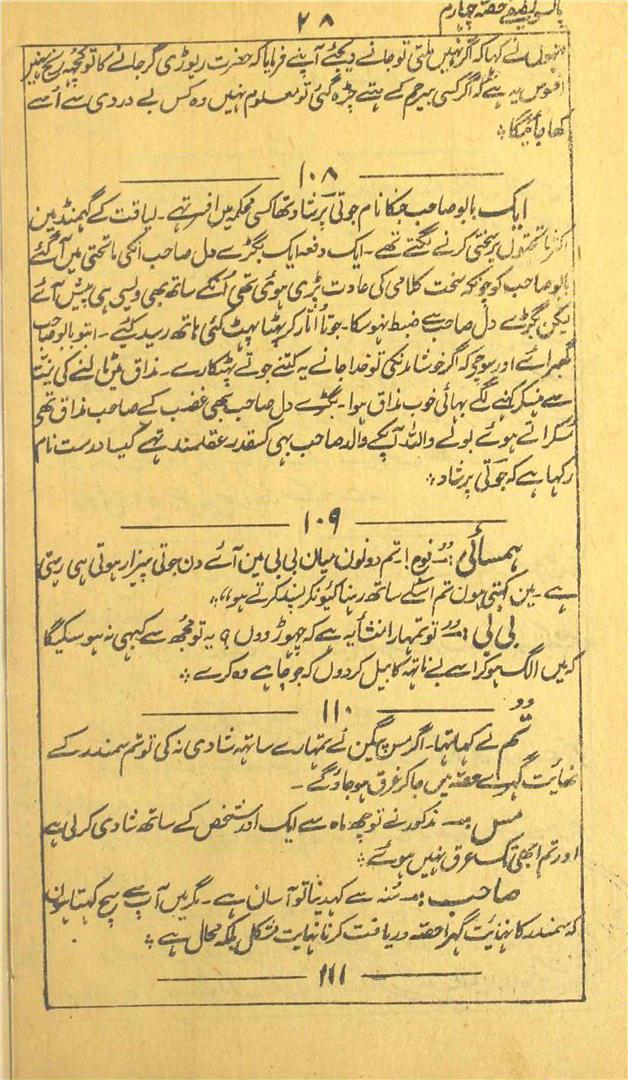 ۲۸
حصہ چہارم
انہوں نے کہا کہ اگر نہیں ملتی تو جانے دیجئے آپ نے فرمایا کہ حضرت ریوڑی گر جانے کا تو کچھ رنج نہیں
افسوس یہ ہے کہ اگر کسی بیرحم کے ہتے چڑہ گئی تو معلوم نہیں وہ کس بے دردی سے اُسے
کھا جائیگا ؞
۱۰۸
ایک بابو صاحب جنکا نام جوتی پرشاد تھا کسی محکمہ میں افسر تہے ۔ لیاقت کے گہمنڈ مین
اکثر ماتحتوں پر سختی کرنے لگتے تھے ۔ ایک دفعہ ایک بگڑے دل صاحب انکی ماتحتی میں آ گئے
بابو صاحب کو چونکہ سخت کلامی کی عادت پڑی ہوئی تھی اُنکے ساتھ بھی ویسی ہی پیش آئے
لیکن بگڑے دل صاحب سے ضبط نہو سکا ۔ جوتا اُتار کر پٹا پہٹ کئی ہاتھ رسید کئے ۔ اب تو بابو صاحب
گھبرائے اور سوچے کہ اگر خوشامد نکی تو خدا جانے یہ کتنے جوتے پہٹکارے ۔ مذاق میں ٹالنے کی نیت
سے ہنسکر کہنے لگے بہائی خوب مذاق ہوا ۔ بگڑے دل صاحب بھی غضب کے صاحب مذاق تھے
مسکراتے ہوئے بولے واللہ آپکے والد صاحب بہی کسقدر عقلمند تہے کیسا درست نام
رکہا ہے کہ جوتی پرشاد ؞
۱۰۹
ہمسائی :۔ "بوم ! تم دونون میان بی بی مین آئے دن جوتی پیزار ہوتی ہی رہتی
ہے ۔ مین کہتی ہون تم اسکے ساتھ رہنا کیونکر پسند کرتے ہو" ؞
بی بی :۔ "تو تمہارا منشأ یہ ہے کہ چہوڑ دوں ؟ یہ تو مُجھ سے کبہی نہ ہو سکیگا
کہ میں الگ ہو کر اسے بے ناتھہ کا بیل کر دوں کہ جو چاہے وہ کرے ؞
۱۱۰
"تم نے کہا تہا ۔ اگر مس پیگین نے تمہارے ساتہہ شادی نہ کی تو تم سمندر کے
نہایت گہرے حصہ میں جا کر غرق ہو جاؤگے ۔
مس :۔ مذکور نے تو چھ ماہ سے ایک اور شخص کے ساتھ شادی کر لی ہے
اور تم ابھی تک غرق نہیں ہوئے ؞
صاحب :۔ مُنہ سے کہدینا تو آسان ہے ۔ مگر میں آپ سے سچ کہتا ہوں
کہ سمندر کا نہایت گہرا حصہ دریافت کرنا نہایت مشکل بلکہ محال ہے ؞
۱۱۱